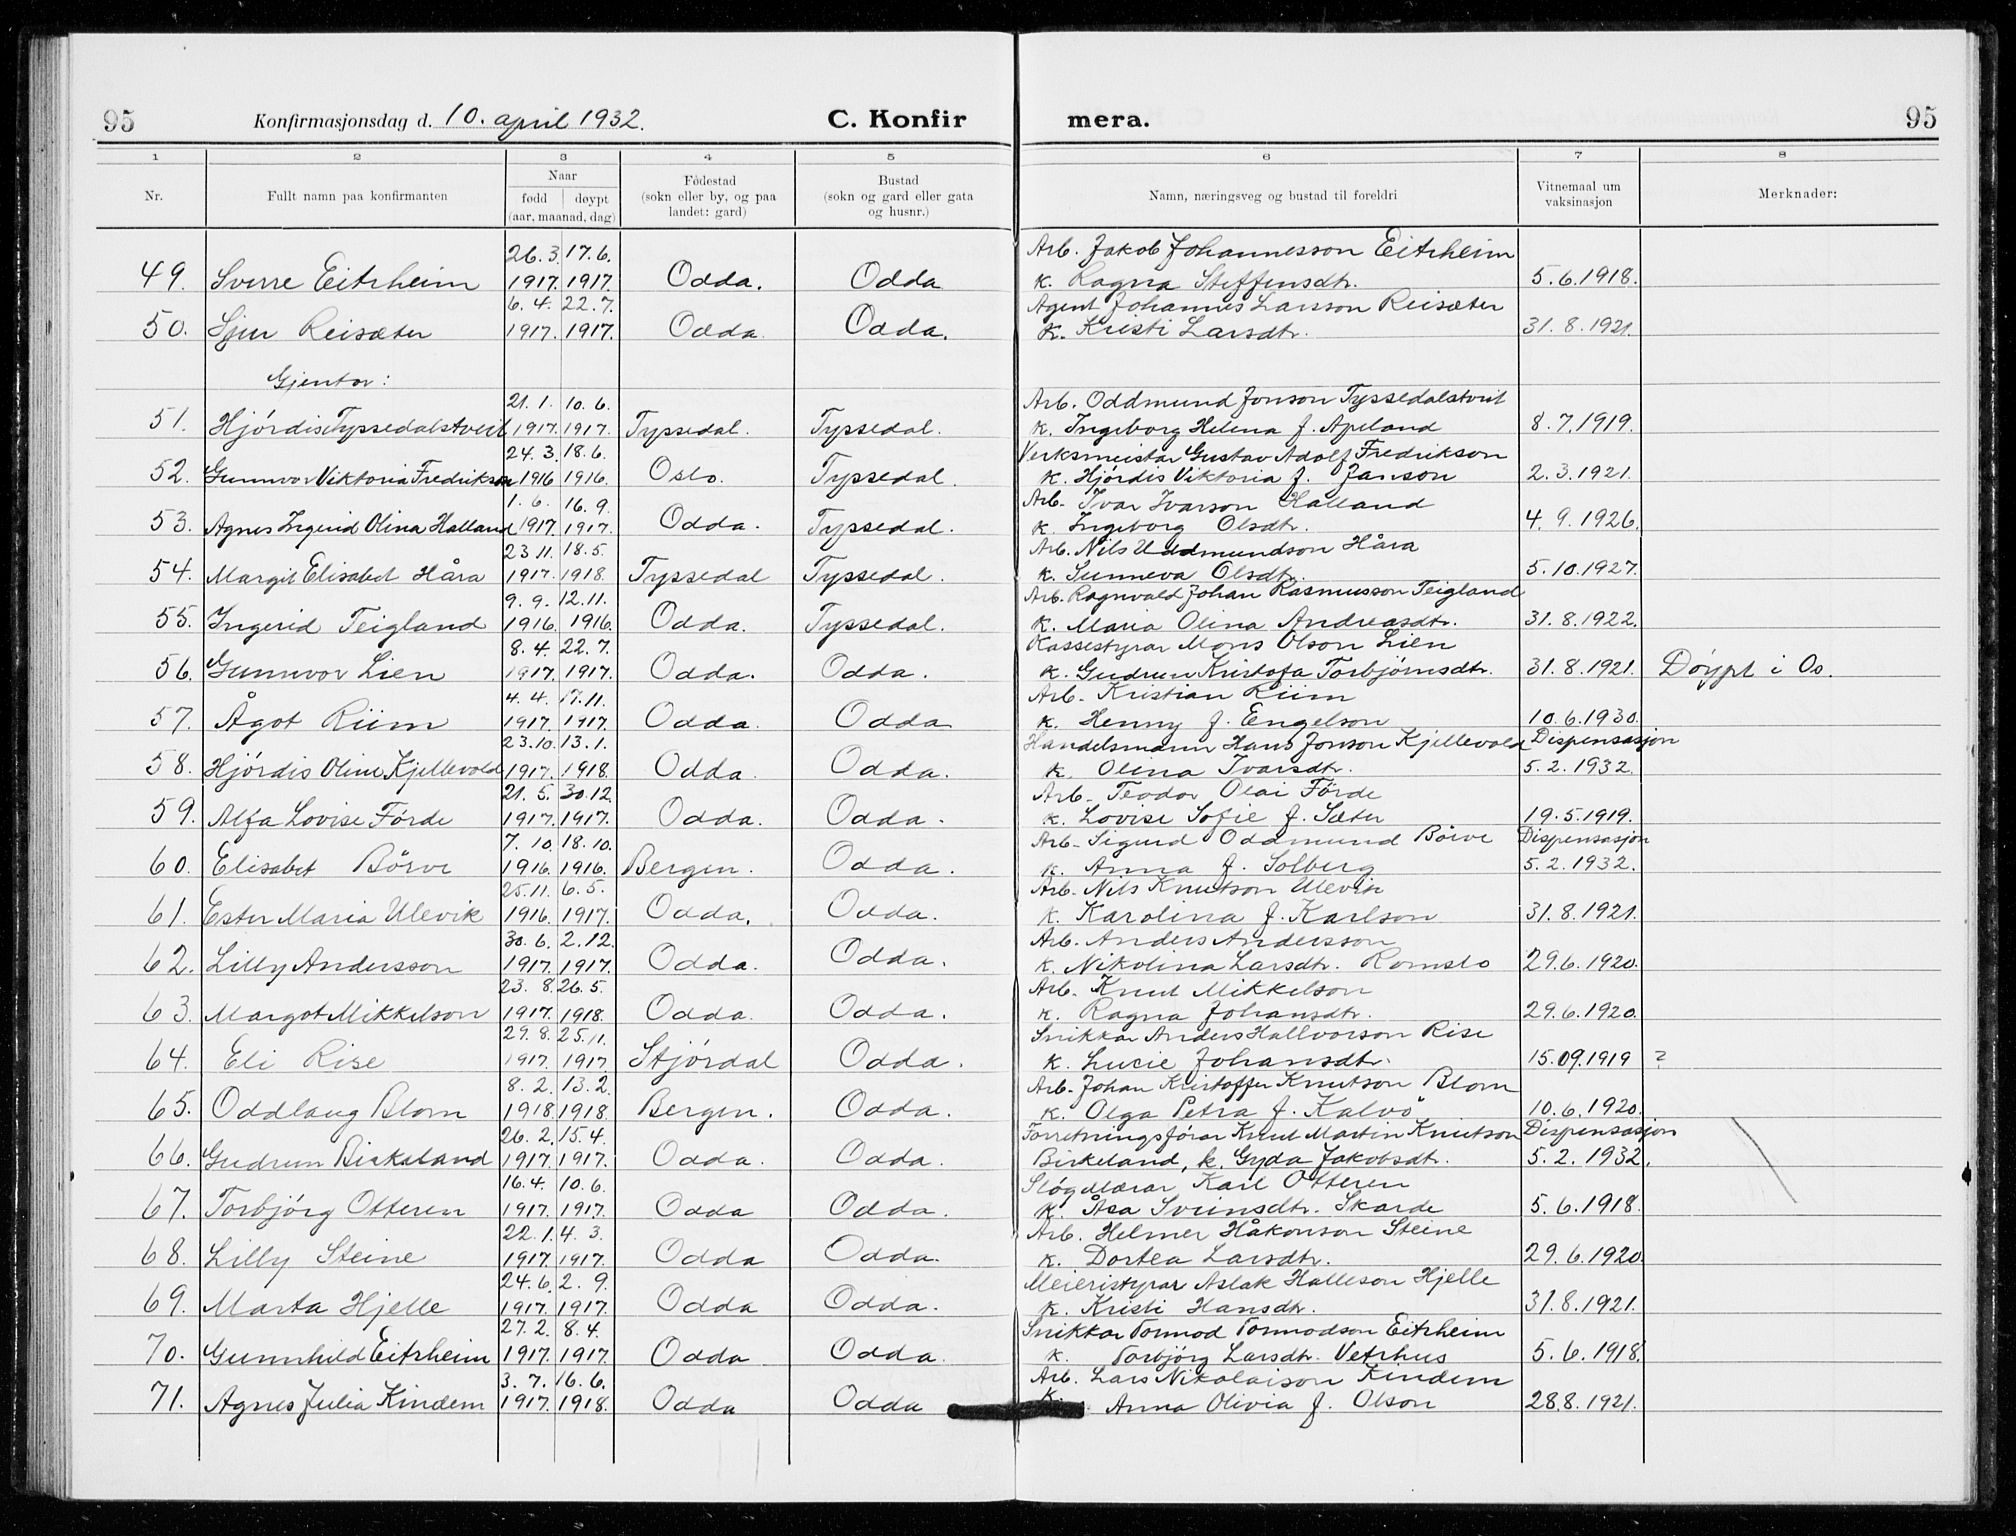 95 Konfirmasjonsdag d. 10. april 1932. C. Konfir mera. 95
1 2 3 4 5 6 7 8
Nr. Fullt namn paa konfirmanten Naar Fødestad Bustad Namn, næringsveg og bustad til foreldri Vitnemaal um Merknader:
fødd døypt (sokn eller by, og paa (sokn og gard eller gata vaksinasjon
(aar, maanad, dag) landet: gard) og husnr.)
26.3. 17.6. Arb. Jakob Johannesson Eitrheim
49. Sverre Eitrheim 1917. 1917. Odda. Odda K. Ragna Steffensdtr. 5.6.1918.
6.4. 22.7. Agent Johannes Larsson Reisæter
50. Sjur Reisæter 1917. 1917. Odda. Odda. K. Kristi Larsdtr. 31.8.1921.
Gjentor:
21.1. 10.6. Arb. Oddmund Jonson Tyssedalstveit
51. Hjördis Tyssedalstveit 1917. 1917. Tyssedal. Tyssedal. K. Ingeborg Helena f. Apeland 8.7.1919.
24.3. 18.6. Verksmeistar Gustav Adolf Fredrikson
52. Gunnvor Viktoria Fredrikson 1916 1916. Oslo. Tyssedal. K. Hjördis Viktoria f. Janson 2.3.1921.
1.6. 16.9. Arb. Ivar Ivarson Halland
53. Agnes Ingerid Olina Halland 1917. 1917. Odda. Tyssedal. K. Ingeborg Olsdtr. 4.9.1926.
23.11. 18.5. Arb. Nils Uddmundson Håra
54. Margit Elisabet Håra 1917. 1918. Tyssedal Tyssedal. K. Sunneva Olsdtr. 5.10.1927.
9.9. 12.11. Arb. Ragnvald Johan Rasmusson Teigland
55. Ingerid Teigland 1916. 1916. Odda. Tyssedal. K. Maria Olina Andreasdtr. 31.8.1922.
8.4. 22.7. Kassestyrar Mons Olson Lien
56. Gunnvor Lien 1917. 1917. Odda. Odda. K. Gudrun Kristofa Torbjørnsdtr. 31.8.1921. Døypt i Os.
4.4. 17.11. Arb. Kristian Riim
57. Ågot Riim 1917. 1917. Odda. Odda K. Henny f. Engelson 10.6.1930.
23.10. 13.1. Handelsmann Hans Jonson Kjellevold Dispensasjon
58. Hjördis Oline Kjellevold 1917. 1918. Odda. Odda. K. Olina Ivarsdtr. 5.2.1932.
21.5. 30.12. Arb. Teodor Olai Förde
59. Alfa Lovise Förde 1917. 1917. Odda. Odda. K. Lovise Sofie f. Sæter 19.5.1919.
7.10. 18.10. Arb. Sigurd Oddmund Börve Dispensasjon
60. Elisabet Börve 1916. 1916. Bergen. Odda. K. Anna f. Solberg 5.2.1932.
25.11. 6.5. Arb. Nils Knutson Ulevik
61. Ester Maria Ulevik 1916. 1917. Odda. Odda. K. Karolina f. Karlson 31.8.1921.
30.6. 2.12. Arb. Anders Andersson
62. Lilly Andersson 1917. 1917. Odda. Odda. K. Nikolina Larsdtr. Romslo 29.6.1920.
23.8. 26.5. Arb. Knut Mikkelson
63. Margot Mikkelson 1917. 1918. Odda. Odda. K. Ragna Johansdtr. 29.6.1920.
29.8. 25.11. Snikkar Anders Hallvorson Rise
64. Eli Rise 1917. 1917. Stjördal Odda. K. Lucie Johansdtr. 15.09.1919 ?
8.2. 13.2. Arb. Johan Kristoffer Knutson Blom
65. Oddlaug Blom 1918. 1918. Bergen. Odda. K. Olga Petra f. Kalvö 10.6.1920.
26.2. 15.4. Forretningsförar Knut Martin Knutson Dispensasjon
66. Gudrun Birkeland 1917. 1917. Odda. Odda. Birkeland, k. Gyda Jakobsdtr. 5.2.1932.
16.4. 10.6. Sløgdlærar Karl Otteren
67. Torbjörg Otteren 1917. 1917. Odda Odda. K. Åsa Sveinsdtr. Skarde 5.6.1918.
22.1. 4.3. Arb. Helmer Håkonson Steine
68. Lilly Steine 1917. 1917. Odda Odda. K. Dortea Larsdtr. 29.6.1920.
24.6. 2.9. Meieristyrar Aslak Halleson Hjelle
69. Marta Hjelle 1917. 1917. Odda Odda. K. Kristi Hansdtr. 31.8.1921.
27.2. 8.4. Snikkar Tormod Tormodson Eitrheim
70. Gunnhild Eitrheim 1917. 1917. Odda Odda. K. Torbjörg Larsdtr. Vetrhus 5.6.1918.
3.7. 16.6. Arb. Lars Nikolaison Kindem
71. Agnes Julia Kindem 1917. 1918. Odda Odda K. Anna Olivia f. Olson 28.8.1921.